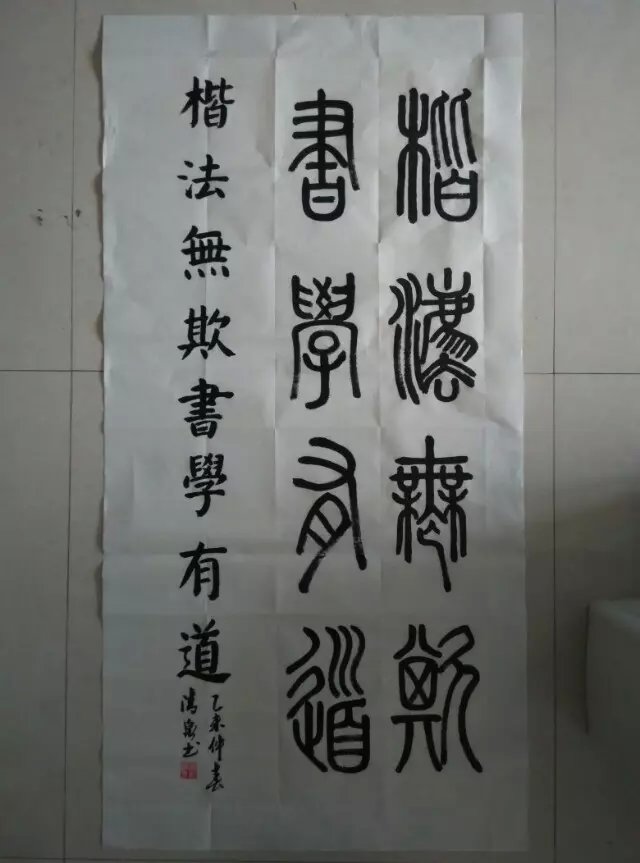 楷灋無欺
書學有道
楷法無欺書學有道
乙未仲春
泉书